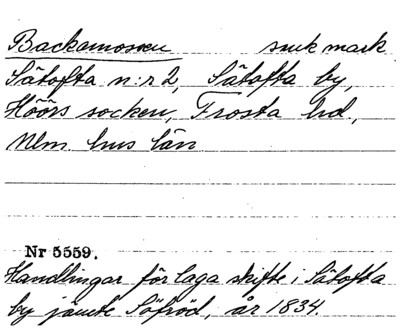 Backamossen sankmark
Sätofta n:r 2, Sätofta by,
Höörs socken, Frosta hd,
Mlm hus län
Nr 5559.
Handlingar för laga skifte i Sätofta
by jämte Söfröd, år 1834.